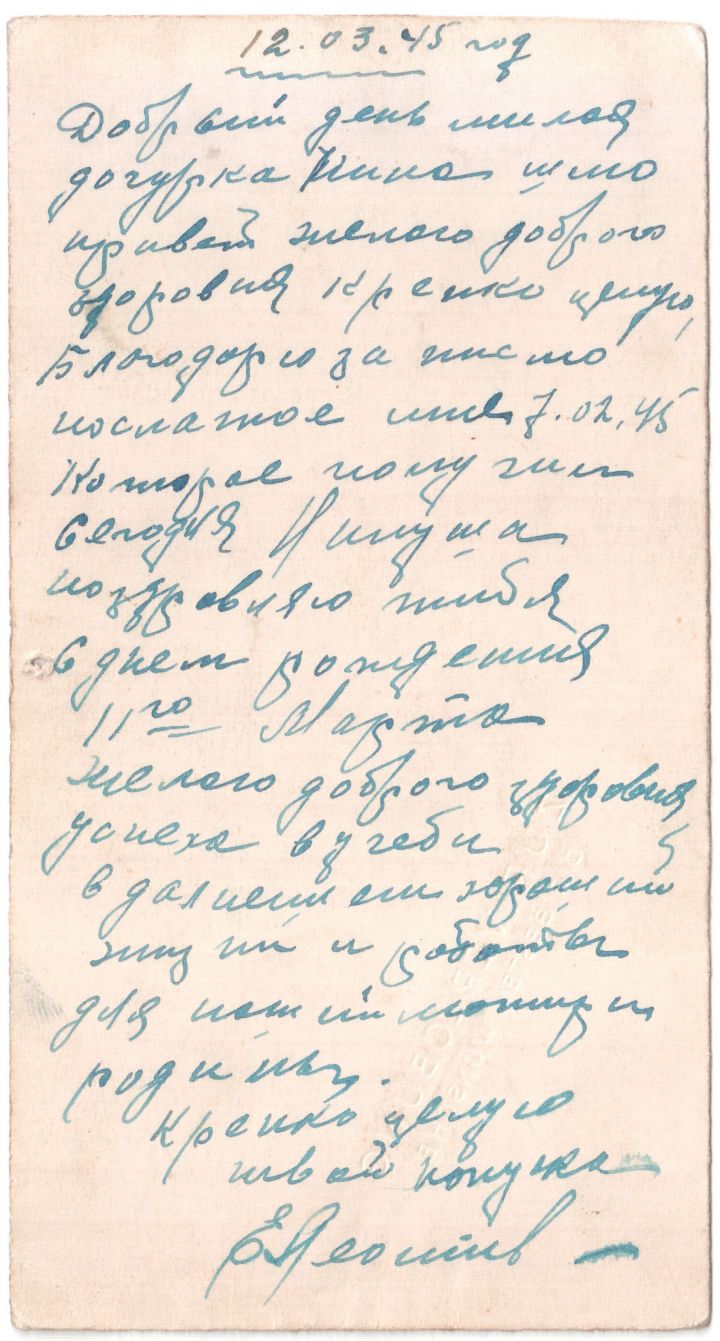 12.03.45 год
Добрый день милая
дочурка Нина шлю
привет желаю доброго
здоровия крепко целую,
Благодарю за писмо
посланое мне 7.02.45
Которое получил
сегодня Нинуша
поздровляю тибя
с днем рождения
11го Марта
желаю доброго здоровия,
успеха в учеби
в далнейшем хорошей
жизни и работы
для нашей матири
родины.
Крепко целую
твой папука
Е